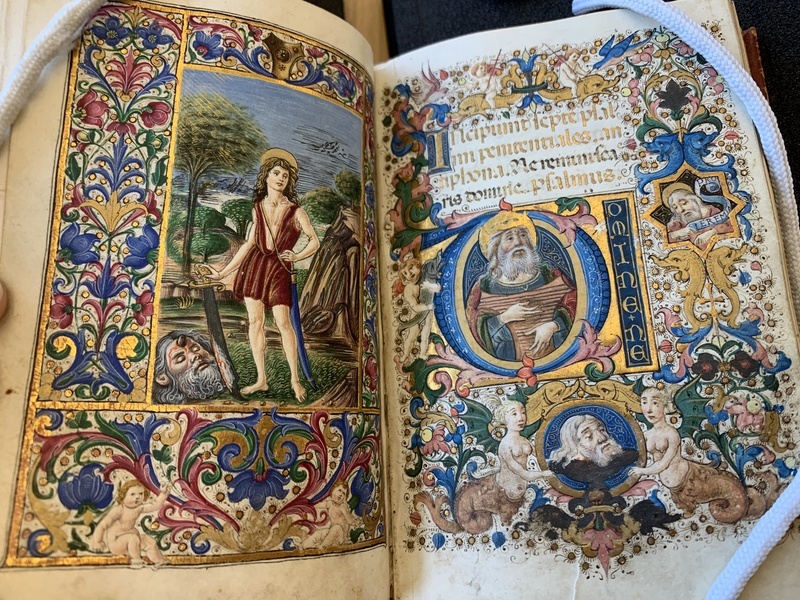 Incipiunt septe psal
mi penitentiales. an
tiphona. Ne reminisca
ris domine. psalmus.
DOMINE·NE